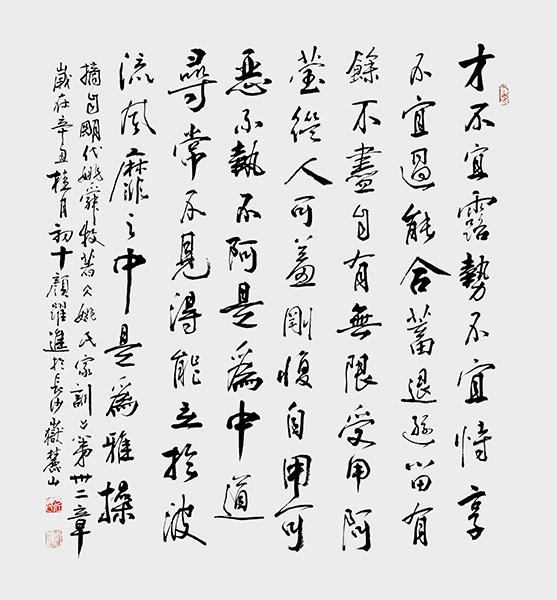 才不宜露勢不宜恃享
不宜過能含蓄退遜留有
餘不盡自有無限受用阿
瑩從人可羞剛愎自用可
惡不執不阿是爲中道
尋常不見得能立於波
流風靡之中是爲雅操
摘自明代姚舜牧著《姚氏家訓》第卅二章
歲在辛丑桂月初十顏躍進於長沙嶽麓山